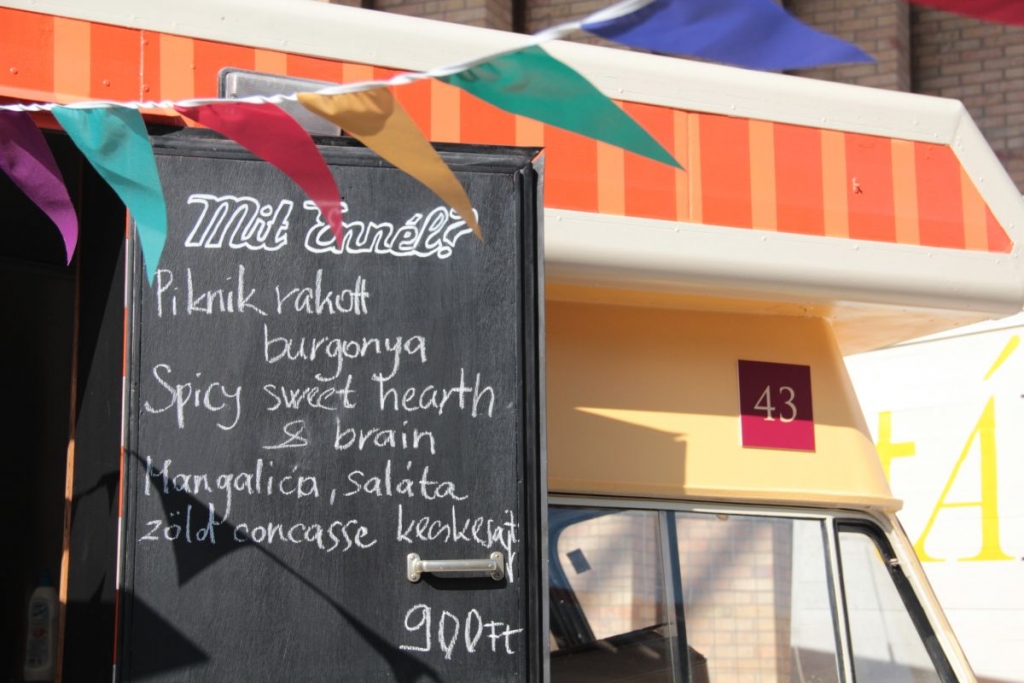 Mit Ennél?
Piknik rakott
burgonya
Spicy sweet hearth
& brain
Mangalica, saláta
zöld concasse kecskesajt
900Ft
43
tÁ